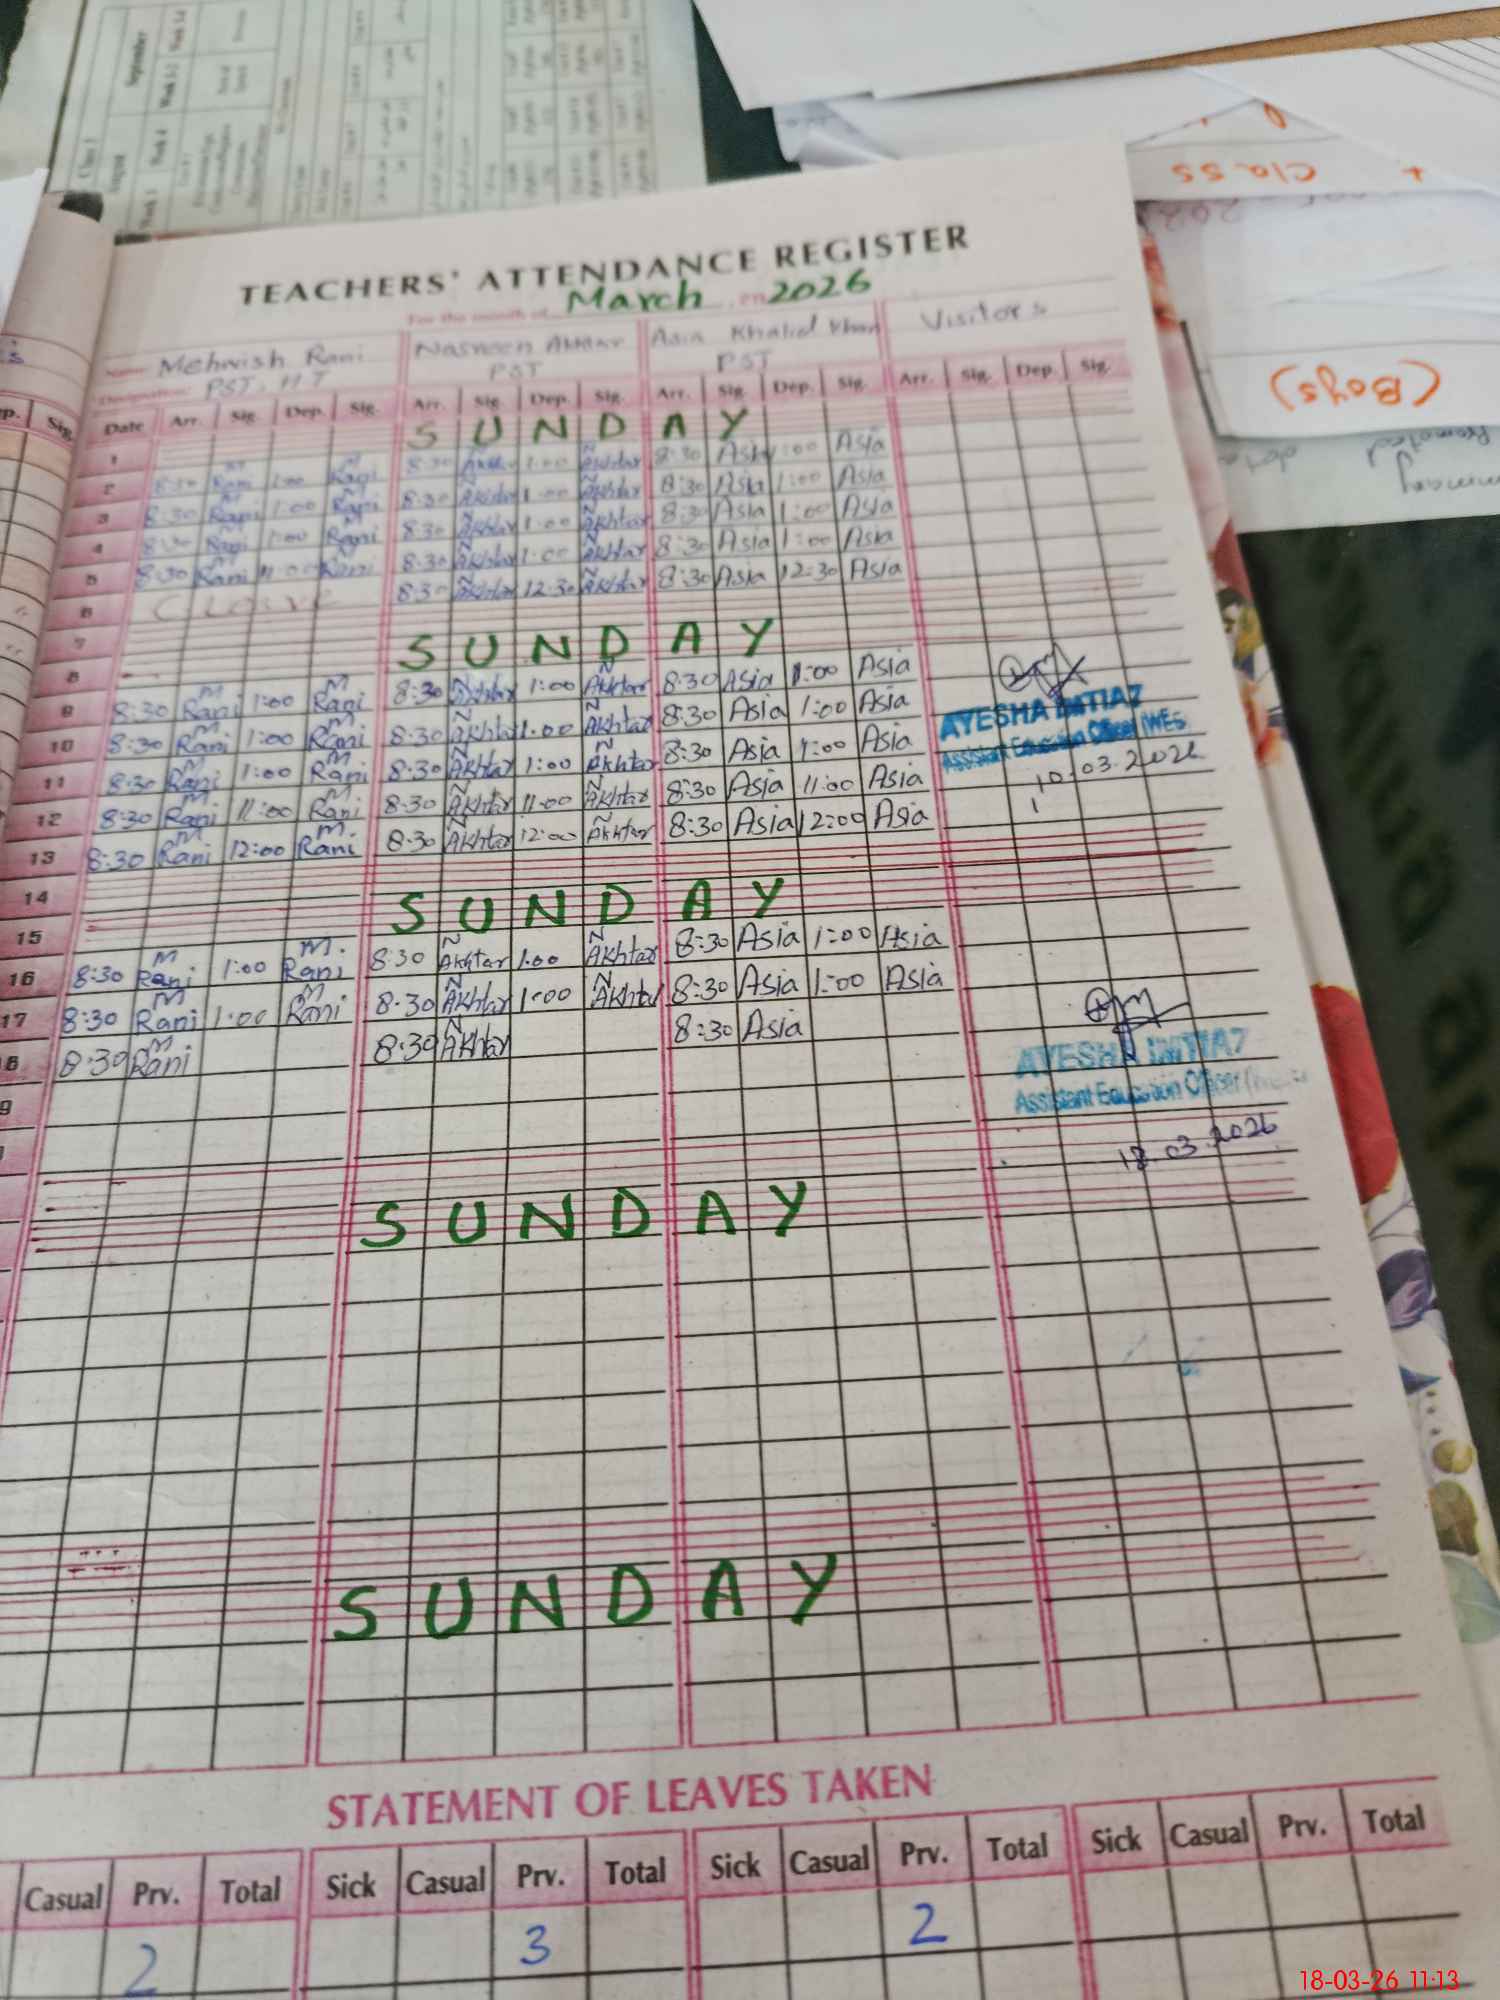 TEACHERS' ATTENDANCE REGISTER
For the month of March 2026
Name Mehwish Rani Nasreen Akhtar Asia Khalid Khan Visitors
Designation PST. HT PST PST
Date Arr. Sig. Dep. Sig. Arr. Sig. Dep. Sig. Arr. Sig. Dep. Sig. Arr. Sig. Dep. Sig.
1 SUNDAY
2 8:30 M Rani 1:00 M Rani 8:30 Akhtar 1:00 N Akhtar 8:30 Asia 1:00 Asia
3 8:30 M Rani 1:00 M Rani 8:30 N Akhtar 1:00 N Akhtar 8:30 Asia 1:00 Asia
4 8:30 M Rani 1:00 M Rani 8:30 N Akhtar 1:00 N Akhtar 8:30 Asia 1:00 Asia
5 8:30 M Rani 11:00 Rani 8:30 N Akhtar 1:00 N Akhtar 8:30 Asia 1:00 Asia
6 8:30 N Akhtar 12:30 N Akhtar 8:30 Asia 12:30 Asia
7
8 SUNDAY
9 8:30 M Rani 1:00 M Rani 8:30 N Akhtar 1:00 N Akhtar 8:30 Asia 1:00 Asia
10 8:30 M Rani 1:00 M Rani 8:30 N Akhtar 1:00 N Akhtar 8:30 Asia 1:00 Asia
AYESHA IMTIAZ
Assistant Education Officer (WE
10.03.2026
11 8:30 M Rani 1:00 M Rani 8:30 N Akhtar 1:00 N Akhtar 8:30 Asia 1:00 Asia
12 8:30 M Rani 11:00 M Rani 8:30 N Akhtar 11:00 N Akhtar 8:30 Asia 11:00 Asia
13 8:30 M Rani 12:00 M. Rani 8:30 N Akhtar 12:00 N Akhtar 8:30 Asia 12:00 Asia
14
15 SUNDAY
16 8:30 M Rani 1:00 M. Rani 8:30 N Akhtar 1:00 N Akhtar 8:30 Asia 1:00 Asia
17 8:30 M Rani 1:00 M Rani 8:30 N Akhtar 1:00 N Akhtar 8:30 Asia 1:00 Asia
8 8:30 M Rani 8:30 N Akhtar 8:30 Asia
AYESHA IMTIAZ
Assistant Education Officer
18.03.2026
9
SUNDAY
SUNDAY
STATEMENT OF LEAVES TAKEN
Casual Prv. Total Sick Casual Prv. Total Sick Casual Prv. Total Sick Casual Prv. Total
2 3 2
class
(Boys)
September
Class 1
August
18-03-26 11:13